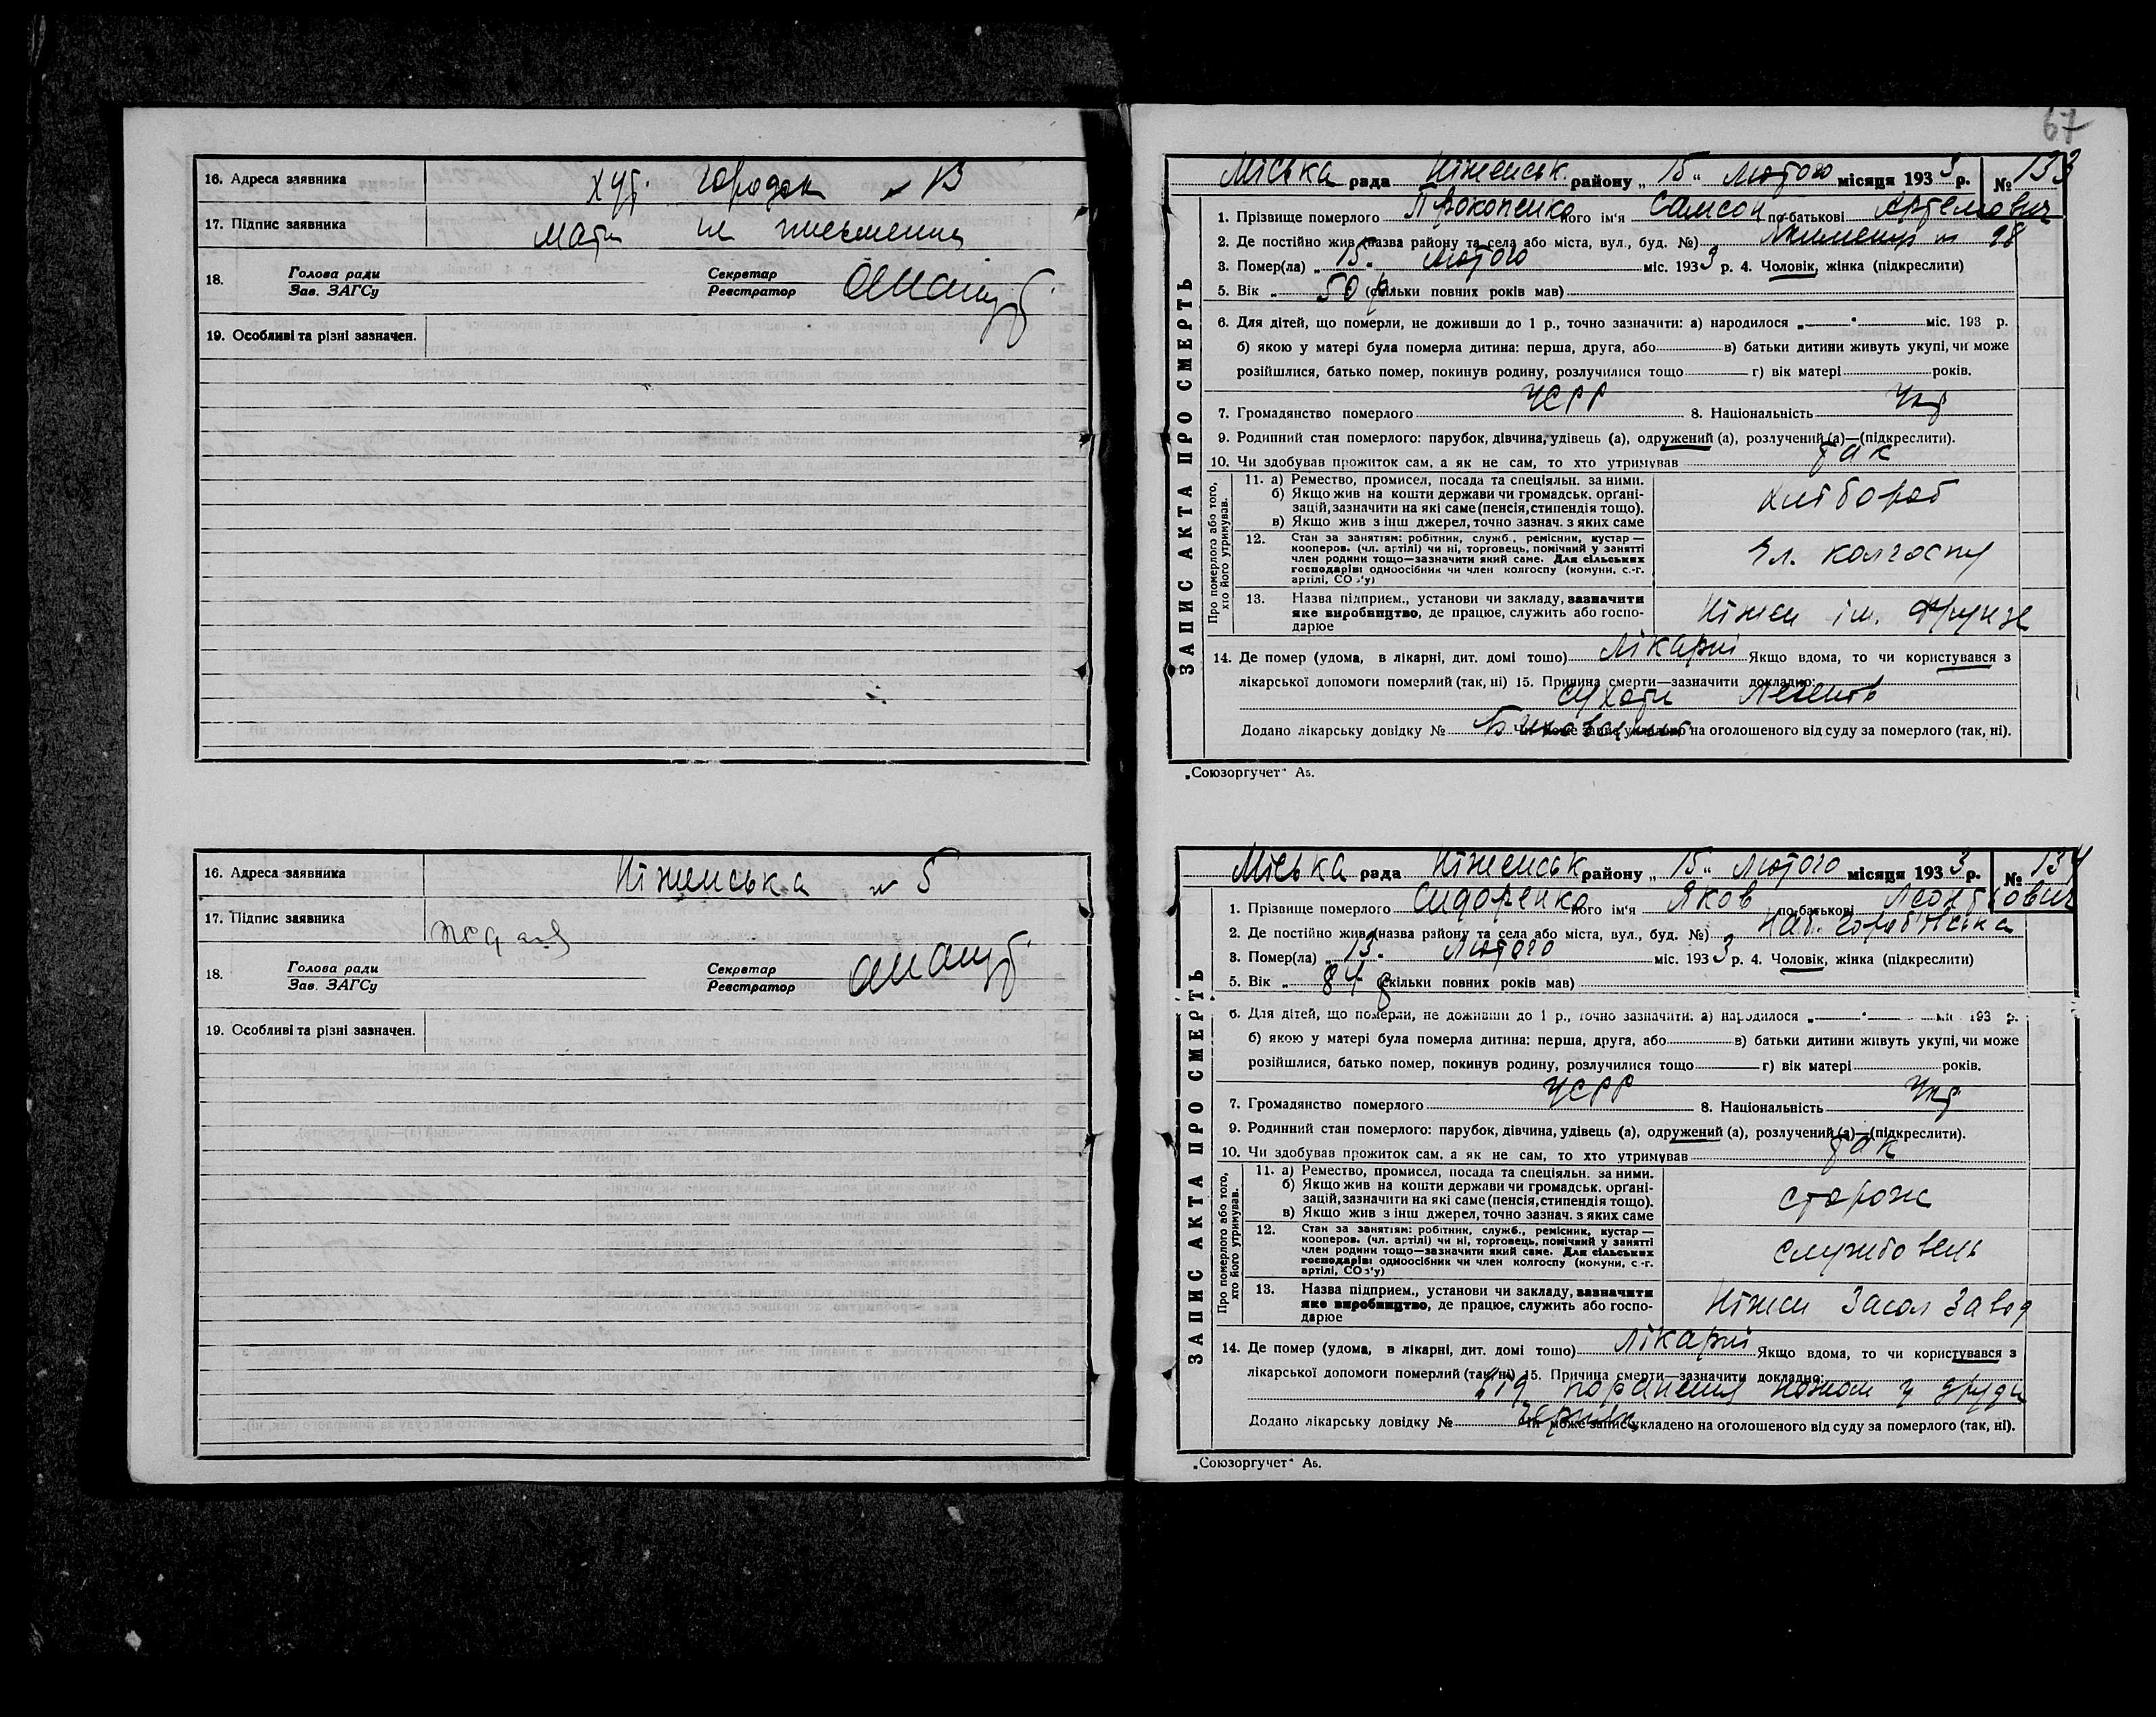 16. Адреса заявника хут. городок № 13
17. Підпис заявника мати не писменна
18. Голова ради Секретар
Зав. ЗАГСу Реєстратор
19. Особливі та різні зазначен.
16. Адреса заявника Ніженська № 5
17. Підпис заявника
18. Голова ради Секретар
Зав. ЗАГСу Реєстратор
19. Особливі та різні зазначен.
67
ЗАПИС АКТА ПРО СМЕРТЬ
Міська рада Ніженськ. району „ 15 “ Лютого місяця 193 3 р. № 133
1. Прізвище померлого Прокопенко його ім'я Самсон по-батькові Артемович
2. Де постійно жив (назва району та села або міста, вул., буд. №) № 98
3. Помер(ла) „ 15 “ Лютого міс. 193 3 р. 4. Чоловік, жінка (підкреслити)
5. Вік „ 50 р (скільки повних років мав)
6. Для дітей, що померли, не доживши до 1 р., точно зазначити: а) народилося „ “ міс. 193 р.
б) якою у матері була померла дитина: перша, друга, або в) батьки дитини живуть укупі, чи може
розійшлися, батько помер, покинув родину, розлучилися тощо г) вік матері років.
7. Громадянство померлого УСРР 8. Національність Укр
9. Родинний стан померлого: парубок, дівчина, удівець (а), одружений (а), розлучений (а)—(підкреслити).
10. Чи здобував прожиток сам, а як не сам, то хто утримував так
Про померлого або того, хто його утримував.
11. а) Ремество, промисел, посада та спеціяльн. за ними. Хлібороб
б) Якщо жив на кошти держави чи громадськ. органі-
зацій, зазначити на які саме (пенсія, стипендія тощо).
в) Якщо жив з інш джерел, точно зазнач. з яких саме
12. Стан за занятям: робітник, служб., ремісник, кустар — Чл. колгоспу
кооперов. (чл. артілі) чи ні, торговець, помічний у занятті
член родини тощо—зазначити який саме. Для сільських
господарів: одноосібник чи член колгоспу (комуни, с.-г.
артілі, СОЗ'у)
13. Назва підприєм., установи чи закладу, зазначити Ніжен ім. Фрунзе
яке виробництво, де працює, служить або госпо-
дарює
14. Де помер (удома, в лікарні, дит. домі тощо) Лікарні Якщо вдома, то чи користувався з
лікарської допомоги померлий (так, ні) 15. Причина смерти—зазначити докладно:
сухоти легенів
Додано лікарську довідку № чи може запис укладено на оголошеного від суду за померлого (так, ні).
„Союзоргучет“ А5.
ЗАПИС АКТА ПРО СМЕРТЬ
Міська рада Ніженськ району „ 15 “ Лютого місяця 193 3 р. № 134
1. Прізвище померлого Сидоренко його ім'я Яков по-батькові Леонтіович
2. Де постійно жив (назва району та села або міста, вул., буд. №) Наб.
3. Помер(ла) „ 13 “ Лютого міс. 193 3 р. 4. Чоловік, жінка (підкреслити)
5. Вік „ 84 р (скільки повних років мав)
6. Для дітей, що померли, не доживши до 1 р., точно зазначити: а) народилося „ “ міс. 193 р.
б) якою у матері була померла дитина: перша, друга, або в) батьки дитини живуть укупі, чи може
розійшлися, батько помер, покинув родину, розлучилися тощо г) вік матері років.
7. Громадянство померлого УСРР 8. Національність Укр
9. Родинний стан померлого: парубок, дівчина, удівець (а), одружений (а), розлучений (а)—(підкреслити).
10. Чи здобував прожиток сам, а як не сам, то хто утримував так
Про померлого або того, хто його утримував.
11. а) Ремество, промисел, посада та спеціяльн. за ними. сторож
б) Якщо жив на кошти держави чи громадськ. органі-
зацій, зазначити на які саме (пенсія, стипендія тощо).
в) Якщо жив з інш джерел, точно зазнач. з яких саме
12. Стан за занятям: робітник, служб., ремісник, кустар — службовець
кооперов. (чл. артілі) чи ні, торговець, помічний у занятті
член родини тощо—зазначити який саме. Для сільських
господарів: одноосібник чи член колгоспу (комуни, с.-г.
артілі, СОЗ'у)
13. Назва підприєм., установи чи закладу, зазначити Ніжен Засол Завод
яке виробництво, де працює, служить або госпо-
дарює
14. Де помер (удома, в лікарні, дит. домі тощо) Лікарні Якщо вдома, то чи користувався з
лікарської допомоги померлий (так, ні) 15. Причина смерти—зазначити докладно:
від поранення ножом у груди
Додано лікарську довідку № чи може запис укладено на оголошеного від суду за померлого (так, ні).
„Союзоргучет“ А5.